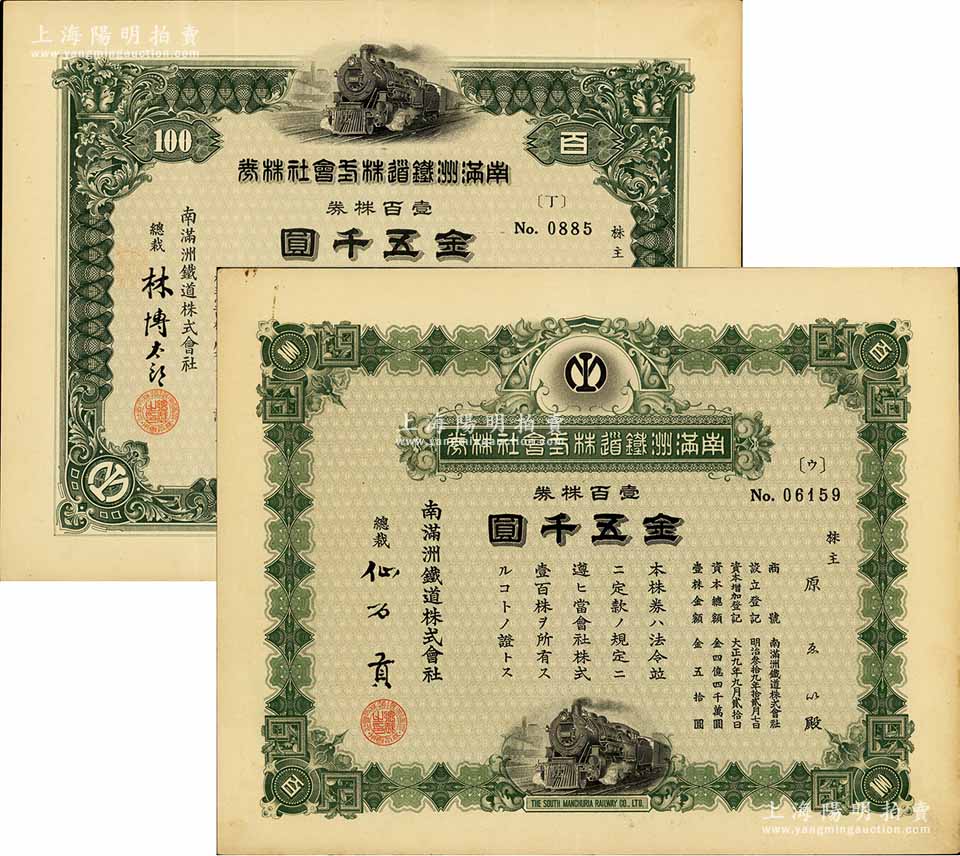 上海陽明拍賣
www.yangmingauction.com
100
百
南滿洲鐵道株式會社株券
壹百株券
金五千圓
〔丁〕
No. 0885
株主
南滿洲鐵道株式會社
總裁
林博太郎
南滿洲鐵道株式會社株券
〔ウ〕
壹百株券
No. 06159
金五千圓
株主 原 ゑい殿
商號 南滿洲鐵道株式會社
設立登記 明治參拾九年拾貳月七日
資本增加登記 大正九年九月貳拾日
資本總額 金四億四千萬圓
壹株金額 金五拾圓
本株券ハ法令竝
ニ定款ノ規定ニ
遵ヒ當會社株式
壹百株ヲ所有ス
ルコトノ證トス
南滿洲鐵道株式會社
總裁 仙石貢
THE SOUTH MANCHURIA RAILWAY CO., LTD.
上海陽明拍賣
www.yangmingauction.com
上海陽明拍賣
www.yangmingauction.com